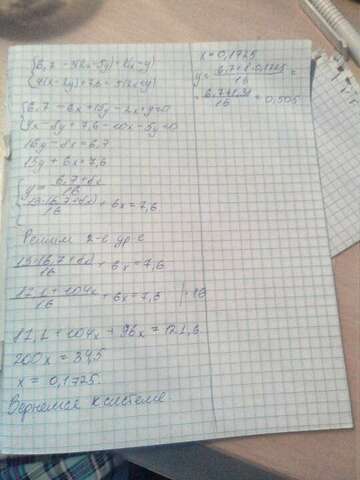 6,7 - 3(2x-5y) = 2x-y
4(x-2y)+7,6 = 5(2x+y)
6,7 - 6x + 15y - 2x + y = 0
4x - 8y + 7,6 - 10x - 5y = 0
16y - 8x = 6,7
13y + 6x = 7,6
y = 6,7+8x / 16
13·(6,7+8x) / 16 + 6x = 7,6
Решим 2-е ур-е
13·(6,7+8x) / 16 + 6x = 7,6
87,1 + 104x / 16 + 6x = 7,6 | ·16
87,1 + 104x + 96x = 121,6
200x = 34,5
x = 0,1725
Вернемся к системе
x = 0,1725
y = 6,7+8·0,1725 / 16 =
= 6,7+1,38 / 16 = 0,505